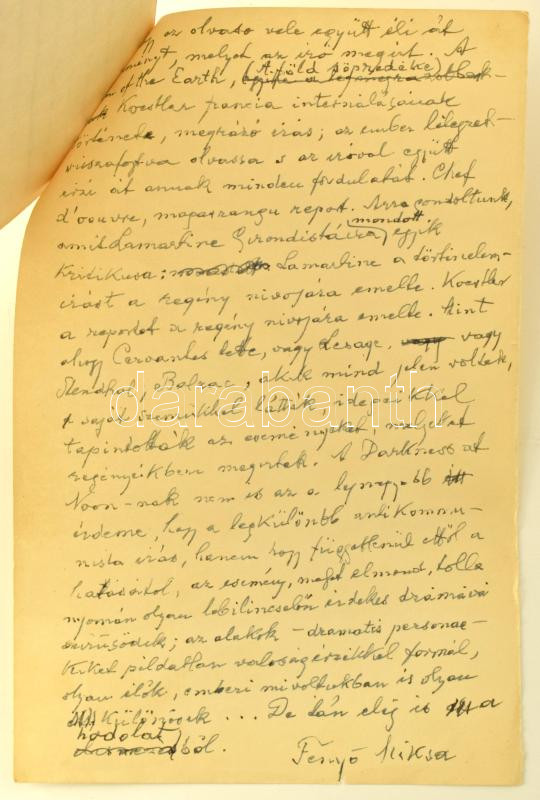 az olvaso vele együtt éli át
melyet az iró megirt. A
of the Earth, (A föld söpredéke)
Koestler francia internálásának
története, megrázó irás; az ember lélegzet-
visszafojtva olvassa s az iróval együtt
érzi át annak minden fordulatát. Chef
d'oeuvre, magasrangu report. Arra gondoltunk,
amit Lamartine Girondistáira mondott egyik
kritikusa: Lamartine a történelem-
irást a regény nivojára emelte. Koestler
a reportot a regény nivojára emelte. Mint
ahogy Cervantes tette, vagy Lesage, vagy
Stendhal, Balzac, akik mind jelen voltak,
s saját szemükkel látták, idegeikkel
tapintották az eseményeket, melyeket
regényeikben megirtak. A Darkness at
Noon-nak nem is az a legnagyobb
érdeme, hogy a legkülönb antikommu-
nista irás, hanem hogy függetlenül ettől a
hatásától, az esemény, melyet elmond, tolla
nyomán olyan lebilincselőn érdekes drámává
sürüsödik; az alakok - dramatis personae -
kiket páldatlan valoságérzékkel formál,
olyan élők, emberi mivoltukban is olyan
különösek ... De tán elég is a
hodolatból.
Fenyő Miksa
darabanth